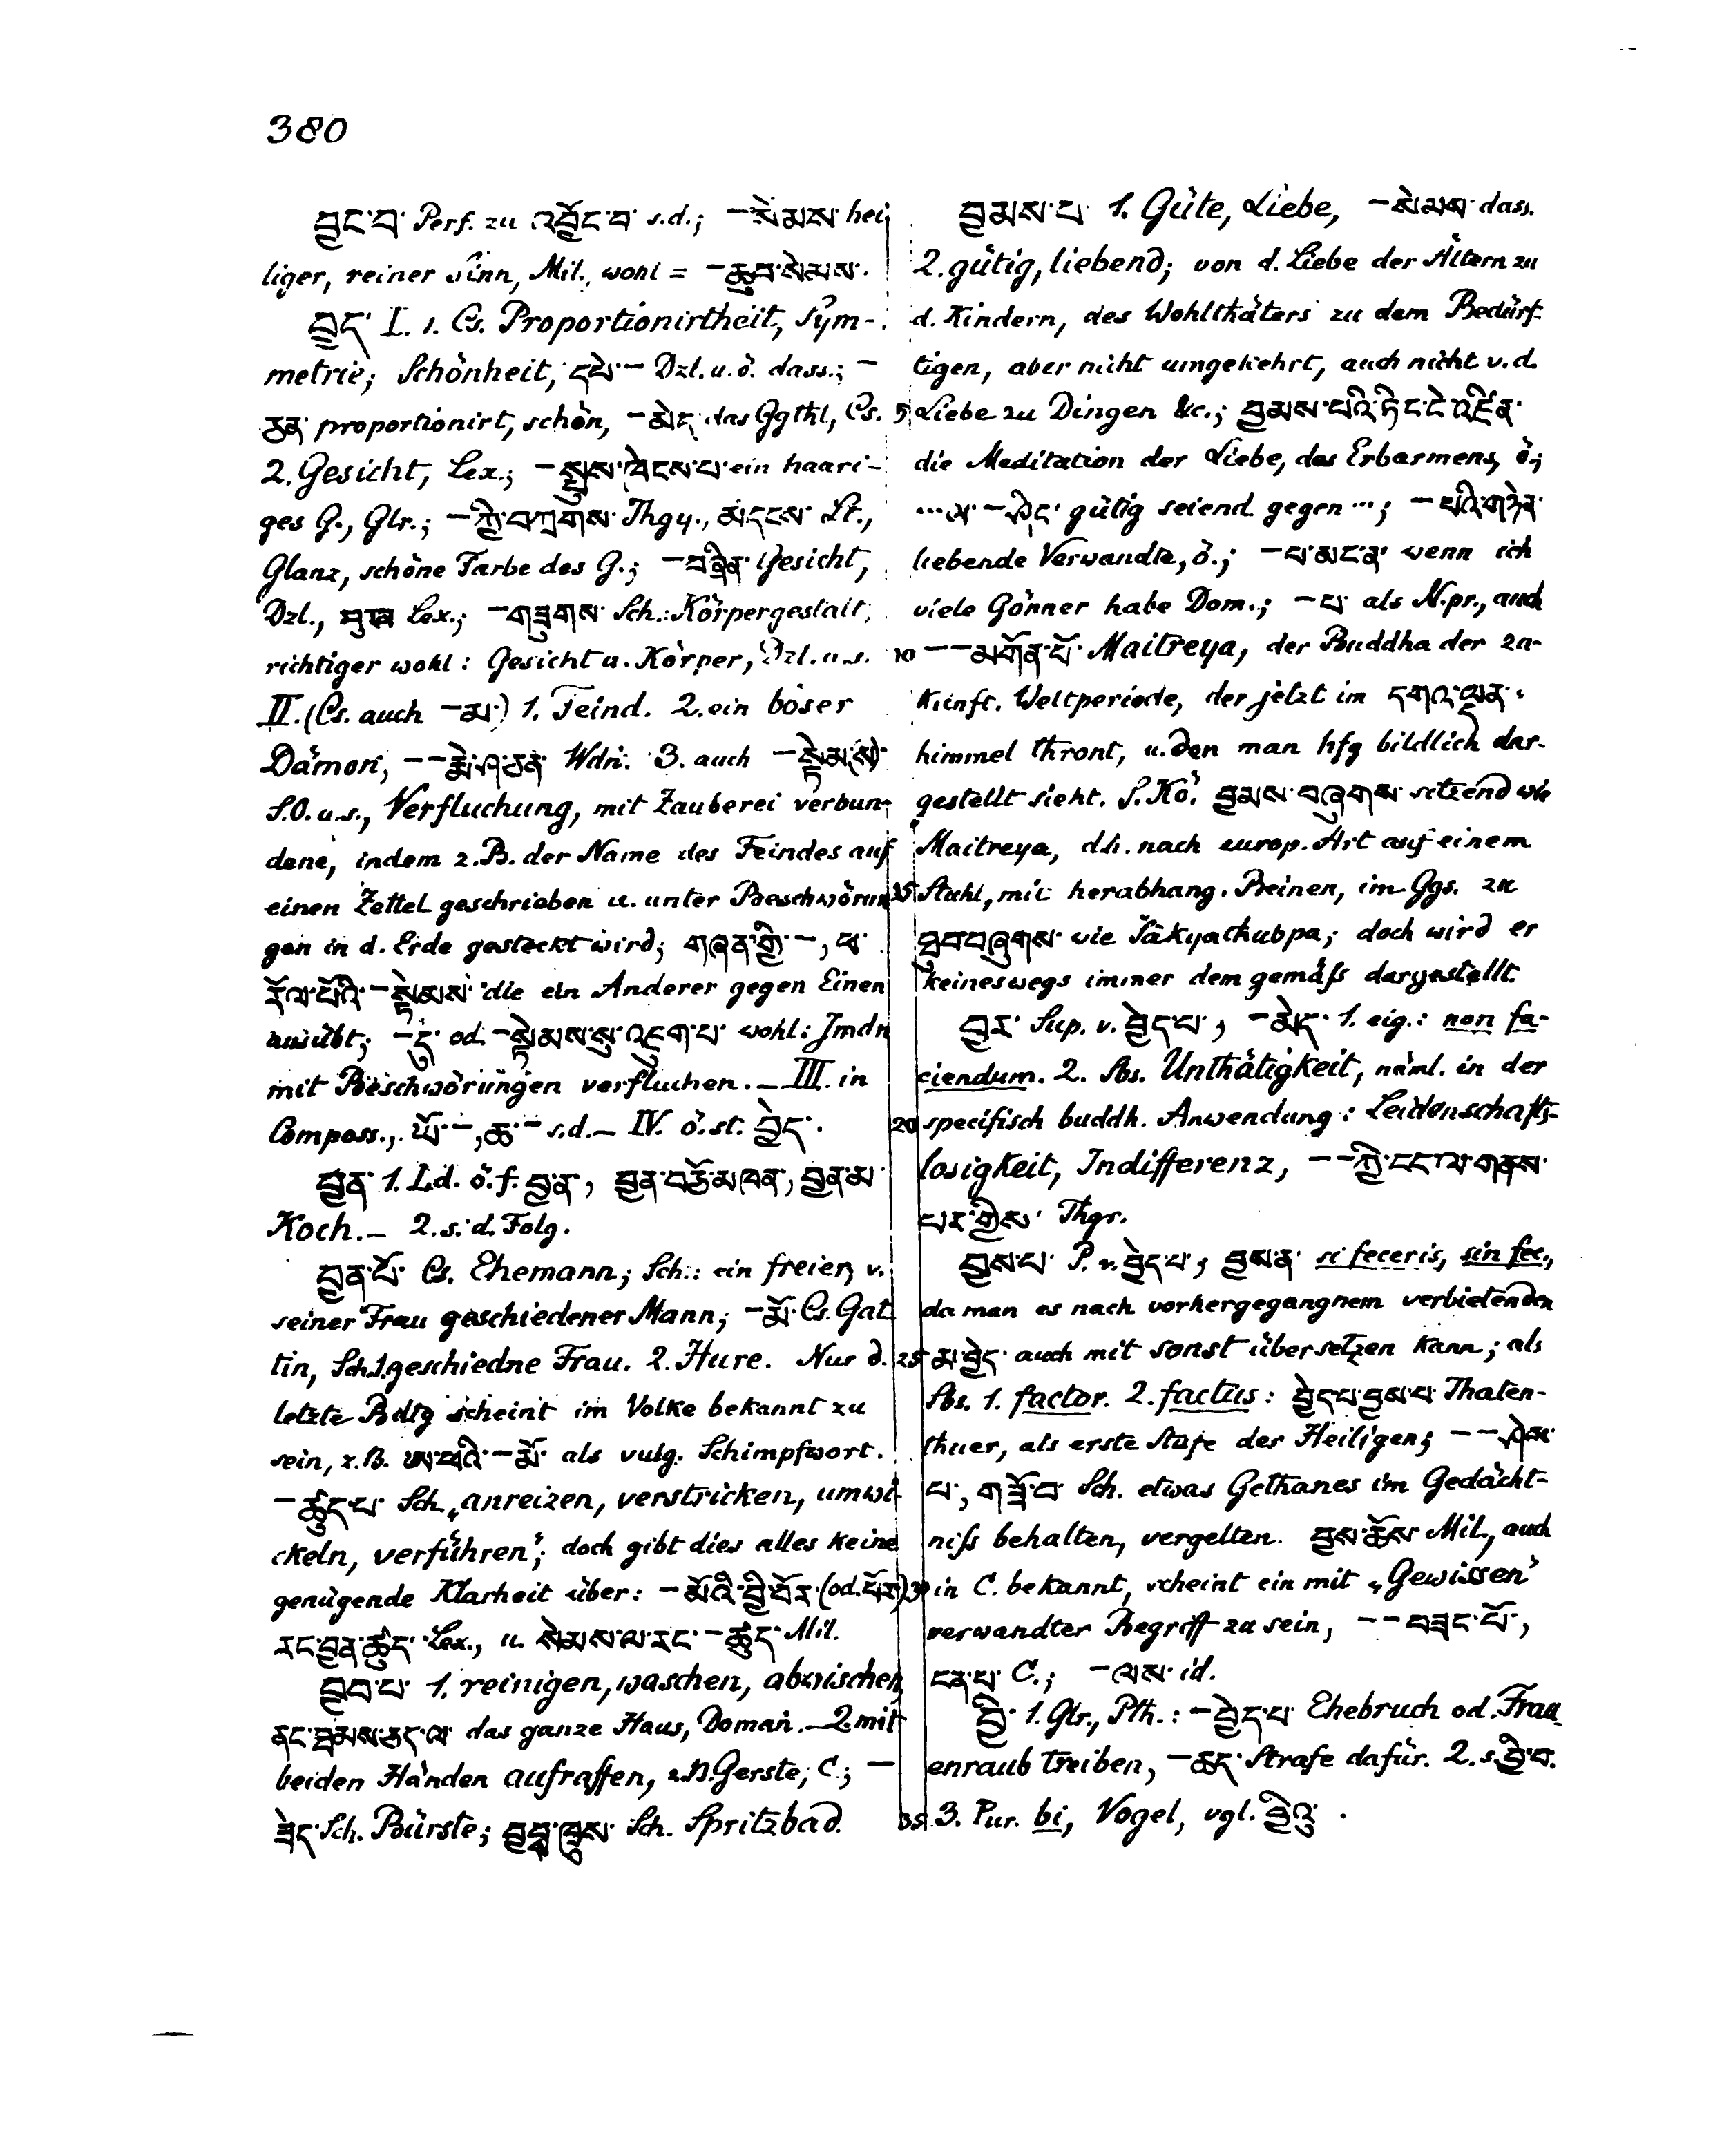 380
བྱང་བ་ Perf. zu འབྱོང་བ་ s.d.; –སེམས་ hei
liger, reiner Sinn, Mil., wohl = –ཆུབ་སེམས་.
བྱད་ I. 1. Cs. Proportionirtheit, Sym-
metrie; Schönheit, དཔེ་– Dzl. u. ö. dass.; –
ཅན་ proportionirt, schön, –མེད་ das Ggthl, Cs.
2. Gesicht, Lex.; –སྤུས་ཁེངས་པ་ ein haari-
ges G., Glr.; –ཀྱི་བཀྲགས་ Thgy., མདངས་ Lt.,
Glanz, schöne Farbe des G.; –བཞིན་ Gesicht,
Dzl., Lex.; –གཟུགས་ Sch.: Körpergestalt,
richtiger wohl: Gesicht u. Körper, Dzl. u. s.
II. (Cs. auch –མ་) 1. Feind. 2. ein böser
Dämon, ––རྨེ་ཤ་ཅན་ Wdn. 3. auch –སྟེམ་(ས)་
S.O. u.s., Verfluchung, mit Zauberei verbun-
dene, indem z.B. der Name des Feindes auf
einen Zettel geschrieben u. unter Beschwörun
gen in d. Erde gesteckt wird; གཞན་གྱི་–, ཕ་
རོལ་པོའི་–སྟེམས་ die ein Anderer gegen Einen
ausübt; –དུ་ od. –སྟེམས་སུ་འཇུག་པ་ wohl: Jmdn
mit Beschwörungen verfluchen. – III. in
Composs., ཡོ་–, ཆ་– s.d. – IV. ö. st. བྱེད་.
བྱན་ 1. Ld. ö. f. བྱ་ན་, བྱན་བཅོམ་ཁན་, བྱན་མ་
Koch. – 2. s. d. Folg.
བྱན་པོ་ Cs. Ehemann; Sch.: ein freier, v.
seiner Frau geschiedener Mann; –མོ་ Cs. Gat
tin, Sch. 1. geschiedne Frau. 2. Hure. Nur d.
letzte Bdtg scheint im Volke bekannt zu
sein, z.B. ཨ་ཕའི་–མོ་ als vulg. Schimpfwort.
–ཚུད་པ་ Sch. „anreizen, verstricken, umwi
ckeln, verführen"; doch gibt dies alles keine
genügende Klarheit über: –མོའི་བྱི་བོར་ (od. པོར་)
རང་བྱན་ཚུད་ Lex., u. སེམས་ལ་རང་–ཚུད་ Mil.
བྱབ་པ་ 1. reinigen, waschen, abwischen,
ནང་ཐམས་ཅད་ལ་ das ganze Haus, Doman. – 2. mit
beiden Händen aufraffen, z.B. Gerste, C.; –
ཟེད་ Sch. Bürste; བྱབ་ཁྲུས་ Sch. Spritzbad.
བྱམས་པ་ 1. Güte, Liebe, –སེམས་ dass.
2. gütig, liebend; von d. Liebe der Ältern zu
d. Kindern, des Wohlthäters zu dem Bedürf-
tigen, aber nicht umgekehrt, auch nicht v. d.
5 Liebe zu Dingen &c.; བྱམས་པའི་ཏིང་ངེ་འཛིན་
die Meditation der Liebe, des Erbarmens, ö.;
...ལ་–ཤིང་ gütig seiend gegen ...; –པའི་གཉེན་
liebende Verwandte, ö.; –པ་མང་ན་ wenn ich
viele Gönner habe Dom.; –པ་ als N. pr., auch
10 ––མགོན་པོ་ Maitreya, der Buddha der zu-
künft. Weltperiode, der jetzt im དགའ་ལྡན་-
himmel thront, u. den man hfg bildlich dar-
gestellt sieht. S. Kö. བྱམས་བཞུགས་ sitzend wie
Maitreya, d.h. nach europ. Art auf einem
15 Stuhl, mit herabhang. Beinen, im Ggs. zu
ཐུབ་བཞུགས་ wie Sākyathubpa; doch wird er
keineswegs immer dem gemäss dargestellt.
བྱར་ Sup. v. བྱེད་པ་, –མེད་ 1. eig.: non fa-
ciendum. 2. Sbs. Unthätigkeit, näml. in der
20 specifisch buddh. Anwendung: Leidenschafts-
losigkeit, Indifferenz, ––ཀྱི་ངང་ལ་གནས་
པར་གྱིས་ Thgr.
བྱས་པ་ P. v. བྱེད་པ་; བྱས་ན་ si feceris, sin fec.,
da man es nach vorhergegangnem verbietenden
25 མ་བྱེད་ auch mit sonst übersetzen kann; als
Sbs. 1. factor. 2. factus: བྱེད་པ་བྱས་པ་ Thaten-
thuer, als erste Stufe der Heiligen; ––ཤེས་
པ་, གཟོ་བ་ Sch. etwas Gethanes im Gedächt-
niss behalten, vergelten. བྱས་ཆོས་ Mil., auch
30 in C. bekannt, scheint ein mit „Gewissen"
verwandter Begriff zu sein, ––བཟང་པོ་,
ངན་པ་ C.; –ལས་ id.
བྱི་ 1. Glr., Pth.: –བྱེད་པ་ Ehebruch od. Frau-
enraub treiben, –ཆད་ Strafe dafür. 2. s. བྱི་བ་.
35 3. Pur. bi, Vogel, vgl. བྱིའུ་.